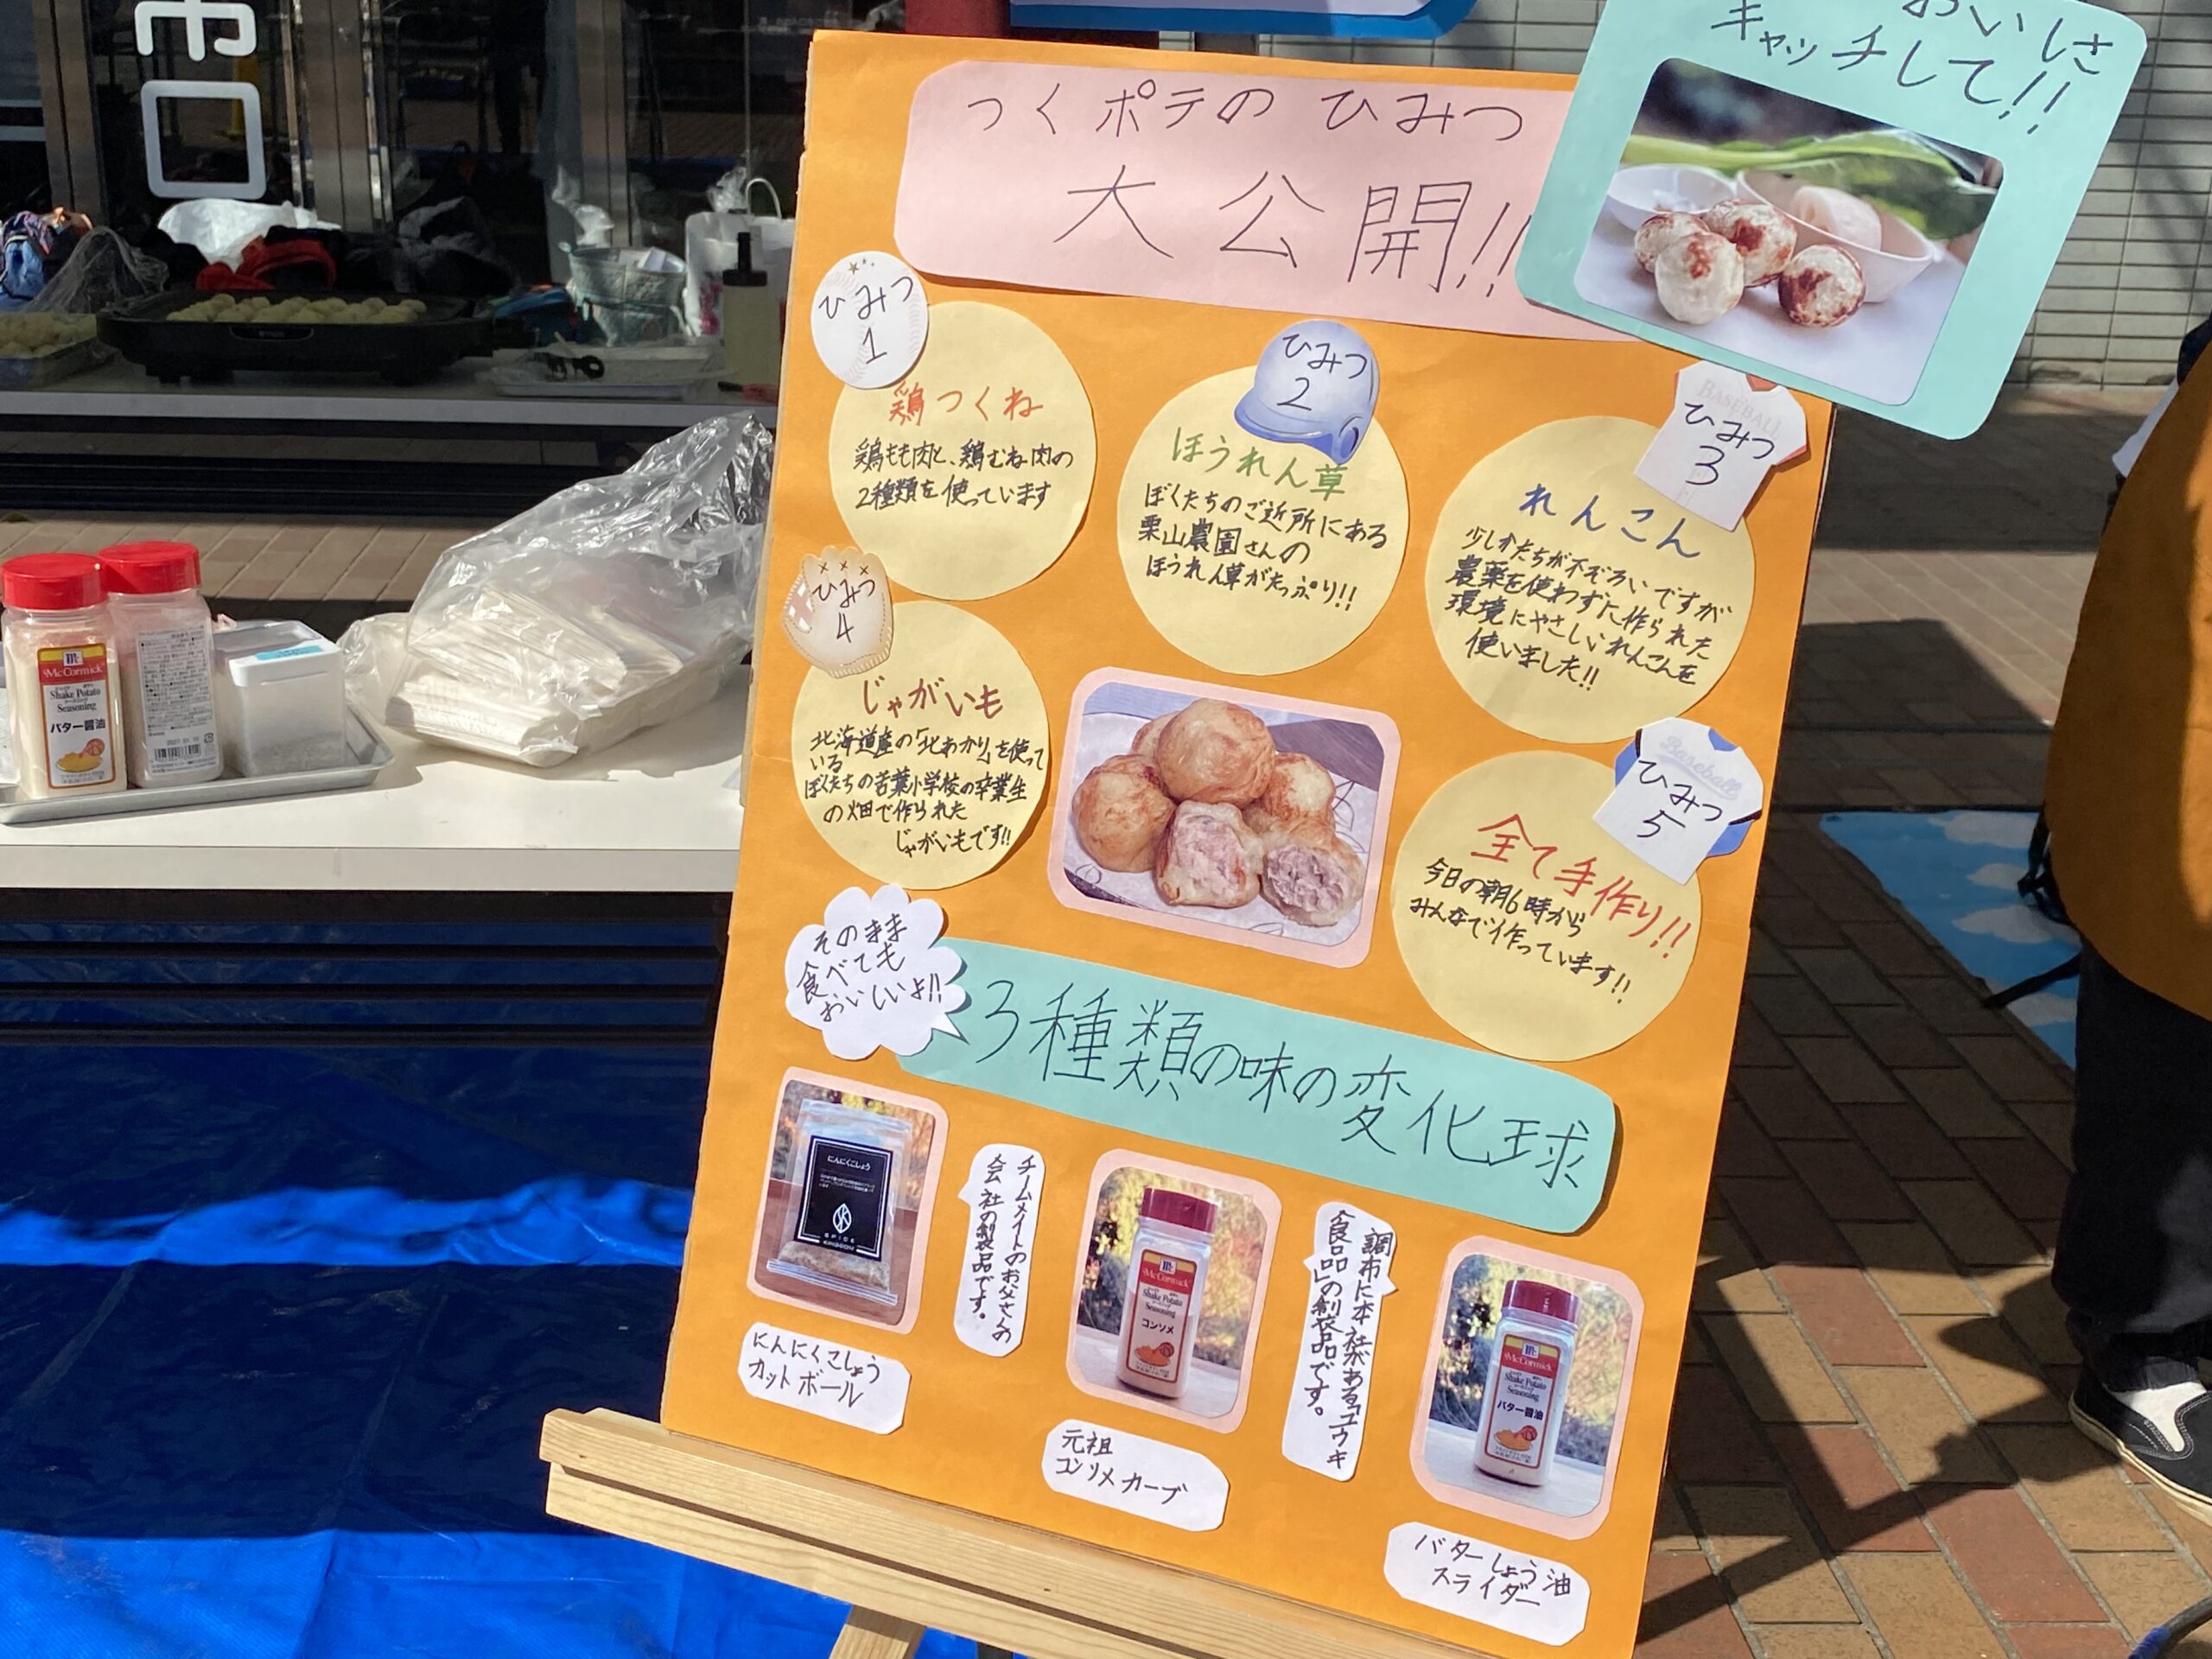 おいしさ
キャッチして!!
つくポテの ひみつ
大公開!!
ひみつ
1
鶏つくね
鶏もも肉と、鶏むね肉の
2種類を使っています
ひみつ
2
ほうれん草
ぼくたちのご近所にある
栗山農園さんの
ほうれん草がたっぷり!!
BASEBALL
ひみつ
3
れんこん
少しかたちが不ぞろいですが
農薬を使わずに作られた
環境にやさしいれんこんを
使いました!!
ひみつ
4
じゃがいも
北海道産の「北あかり」を使って
いる
ぼくたちの若葉小学校の卒業生
の畑で作られた
じゃがいもです!!
Baseball
ひみつ
5
全て手作り!!
今日の朝6時から
みんなで作っています!!
そのまま
食べても
おいしいよ!!
3種類の味の変化球
にんにくこしょう
SPICE
KINGDOM
にんにくこしょう
カットボール
チームメイトのお父さんの
会社の製品です。
McCormick
Shake Potato
Seasoning
コンソメ
元祖
コンソメカーブ
調布に本社がある「ユウキ
食品」の製品です。
McCormick
Shake Potato
Seasoning
バター醤油
バターしょう油
スライダー
McCormick
Shake Potato
Seasoning
バター醤油